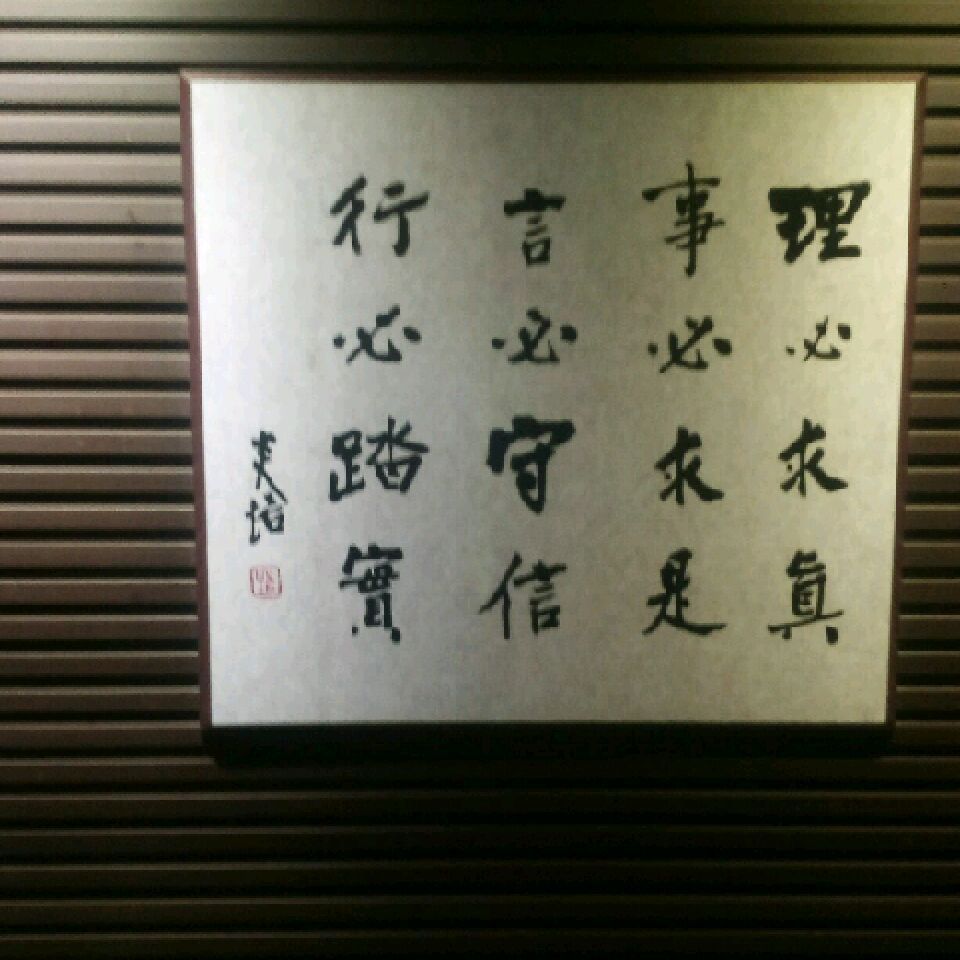 理必求真
事必求是
言必守信
行必踏實